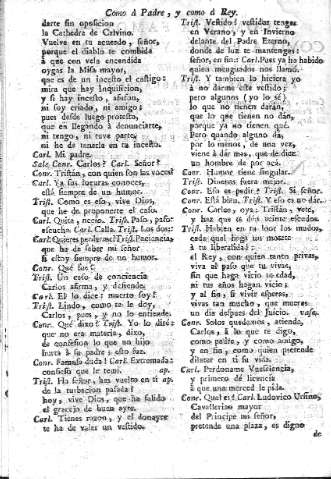 Como à Padre, y como à Rey.
darte sin oposicion
la Cathedra de Calvino.
Vuelve en tu acuerdo, señor,
porque el diablo te combida
à que con vela encendida
oygas la Misa mayor,
que es de un incesto el castigo:
mira que hay Inquisicion,
y si hay incesto, afufon,
mi soy criado, ni amigo;
pues desde luego protesto,
que en llegando à denunciarte,
ni tengo, ni tuve parte
ni he de tenerla en tu incesto.
Carl. Mi padre.
Sale Conr. Carlos? Carl. Señor?
Conr. Tristán, con quien son las voces?
Carl. Ya sus locuras conoces,
está siempre de un humor.
Trist. Como es eso, vive Dios,
que he de proponerte el caso.
Carl. Quita, necio. Trist. Paso, paso:
escucha. Carl. Calla. Trist. Los dos:
Carl. Quieres perderme? Trist. Paciencia,
que ha de saber mi señor
si estoy siempre de un humor.
Conr. Qué fue?
Trist. Un caso de conciencia
Carlos afirma, y defiende.
Carl. El lo dice: muerto soy!
Trist. Lindo, como te le doy,
Carlos, pues, y no lo entiende.
Conr. Qué dixo? Trist. Yo lo diré:
que no era materia, dixo,
de confesion lo que un hijo
hurta à su padre
Conr. Famosa duda! Carl. Extremada:
confieso que le temí. ap.
Trist. Ha señor, has vuelto en ti ap.
de la turbacion pasada?
hoy, vive Dios, que ha salido
el gracejo de buen ayre.
Carl. Tienes razon, y el donayre
te ha de valer un vestido.
Trist. Vestido? vestidos tengas
en Verano, y en Invierno
delante del Padre Eterno,
donde de luz te mantengas:
señor, es sin: Carl. Pues ya ho habido
quien menguados nos llamó.
Trist. Y tambien la hiciera yo
à no darme este vestido;
pero algunos (yo lo sé)
lo que no tienen darán,
que lo que tienen no dan,
porque ya no tienen qué.
Pero quando alguno dá,
por lo menos, de una vez,
viene à dar mas, que de diez
un hombre de por acá.
Conr. Humor tiene singular.
Trist. Dineros fuera mejor.
Conr. Eso es pedir? Trist. Si señor.
Conr. Está bien. Trist. Y eso es no dar.
Conr. Carlos, oye: Tristán, vete,
y haz que te dén treinta escudos.
Trist. Hablen en tu loor los mudos,
cada qual haga un motete
à tu liberalidad:
el Rey, con quien tanto privas,
viva al paso que tu vivas,
sin que haga vicio su edad,
ni tus años hagan vicio;
y al fin, si vivir esperas,
vivas tan mucho, que mueras
un dia despues del Juicio. vase.
Conr. Solos quedamos, atiende,
Carlos, à lo que te digo,
como padre, y como amigo,
y en fin, como quien pretende
dilatar en ti su vida.
Carl. Perdoname Vueseñoria,
y primero dé licencia
à que una merced le pida.
Conr. Qual es? Carl. Ludovico Ursino,
Cavallerizo mayor
del Principe mi señor,
pretende una plaza, es digno
de